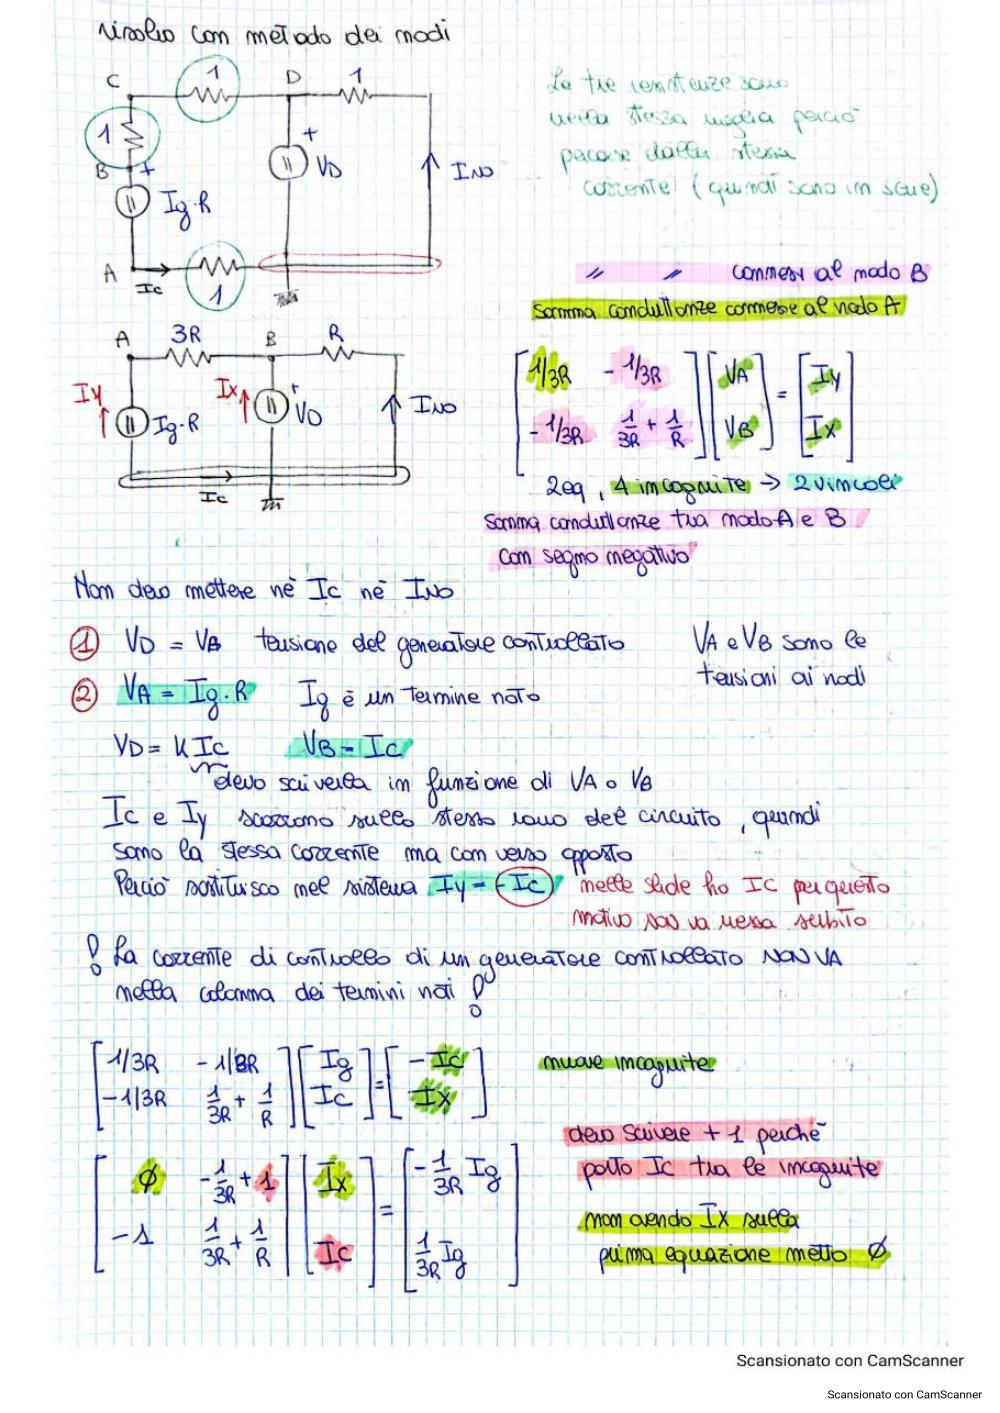 risolvo con metodo dei nodi
C 1 D 1
1
B + + VD INO
Ig·R
A Ic 1
Le tre resistenze sono
nella stessa maglia perciò
percorse dalla stessa
corrente (quindi sono in serie)
" " connesse al nodo B
Somma conduttanze connesse al nodo A
A 3R B R
Iy Ig·R Ix + VD INO
Ic
[1/3R -1/3R] [VA] = [Iy]
[-1/3R 1/3R + 1/R] [VB] [Ix]
2eq, 4 incognite → 2 vincoli
Somma conduttanze tra nodo A e B
con segno negativo
Non devo mettere nè Ic nè INO
① VD = VB tensione del generatore controllato
VA e VB sono le
tensioni ai nodi
② VA = Ig·R Ig è un termine noto
VD = K Ic VB = Ic
devo scriverla in funzione di VA o VB
Ic e Iy scorrono sullo stesso ramo del circuito, quindi
sono la stessa corrente ma con verso opposto
Perciò sostituisco nel sistema Iy = -Ic nelle slide ho IC per questo
motivo non va messa subito
! La corrente di controllo di un generatore controllato NON VA
nella colonna dei termini noti !
[1/3R -1/3R] [Ig] = [-Ic] nuove incognite
[-1/3R 1/3R + 1/R] [Ic] [Ix]
devo scrivere +1 perchè
porto Ic tra le incognite
[∅ -1/3R + 1] [Ix] = [-1/3R Ig]
[-1 1/3R + 1/R] [Ic] [1/3R Ig]
non avendo Ix sulla
prima equazione metto ∅
Scansionato con CamScanner
Scansionato con CamScanner